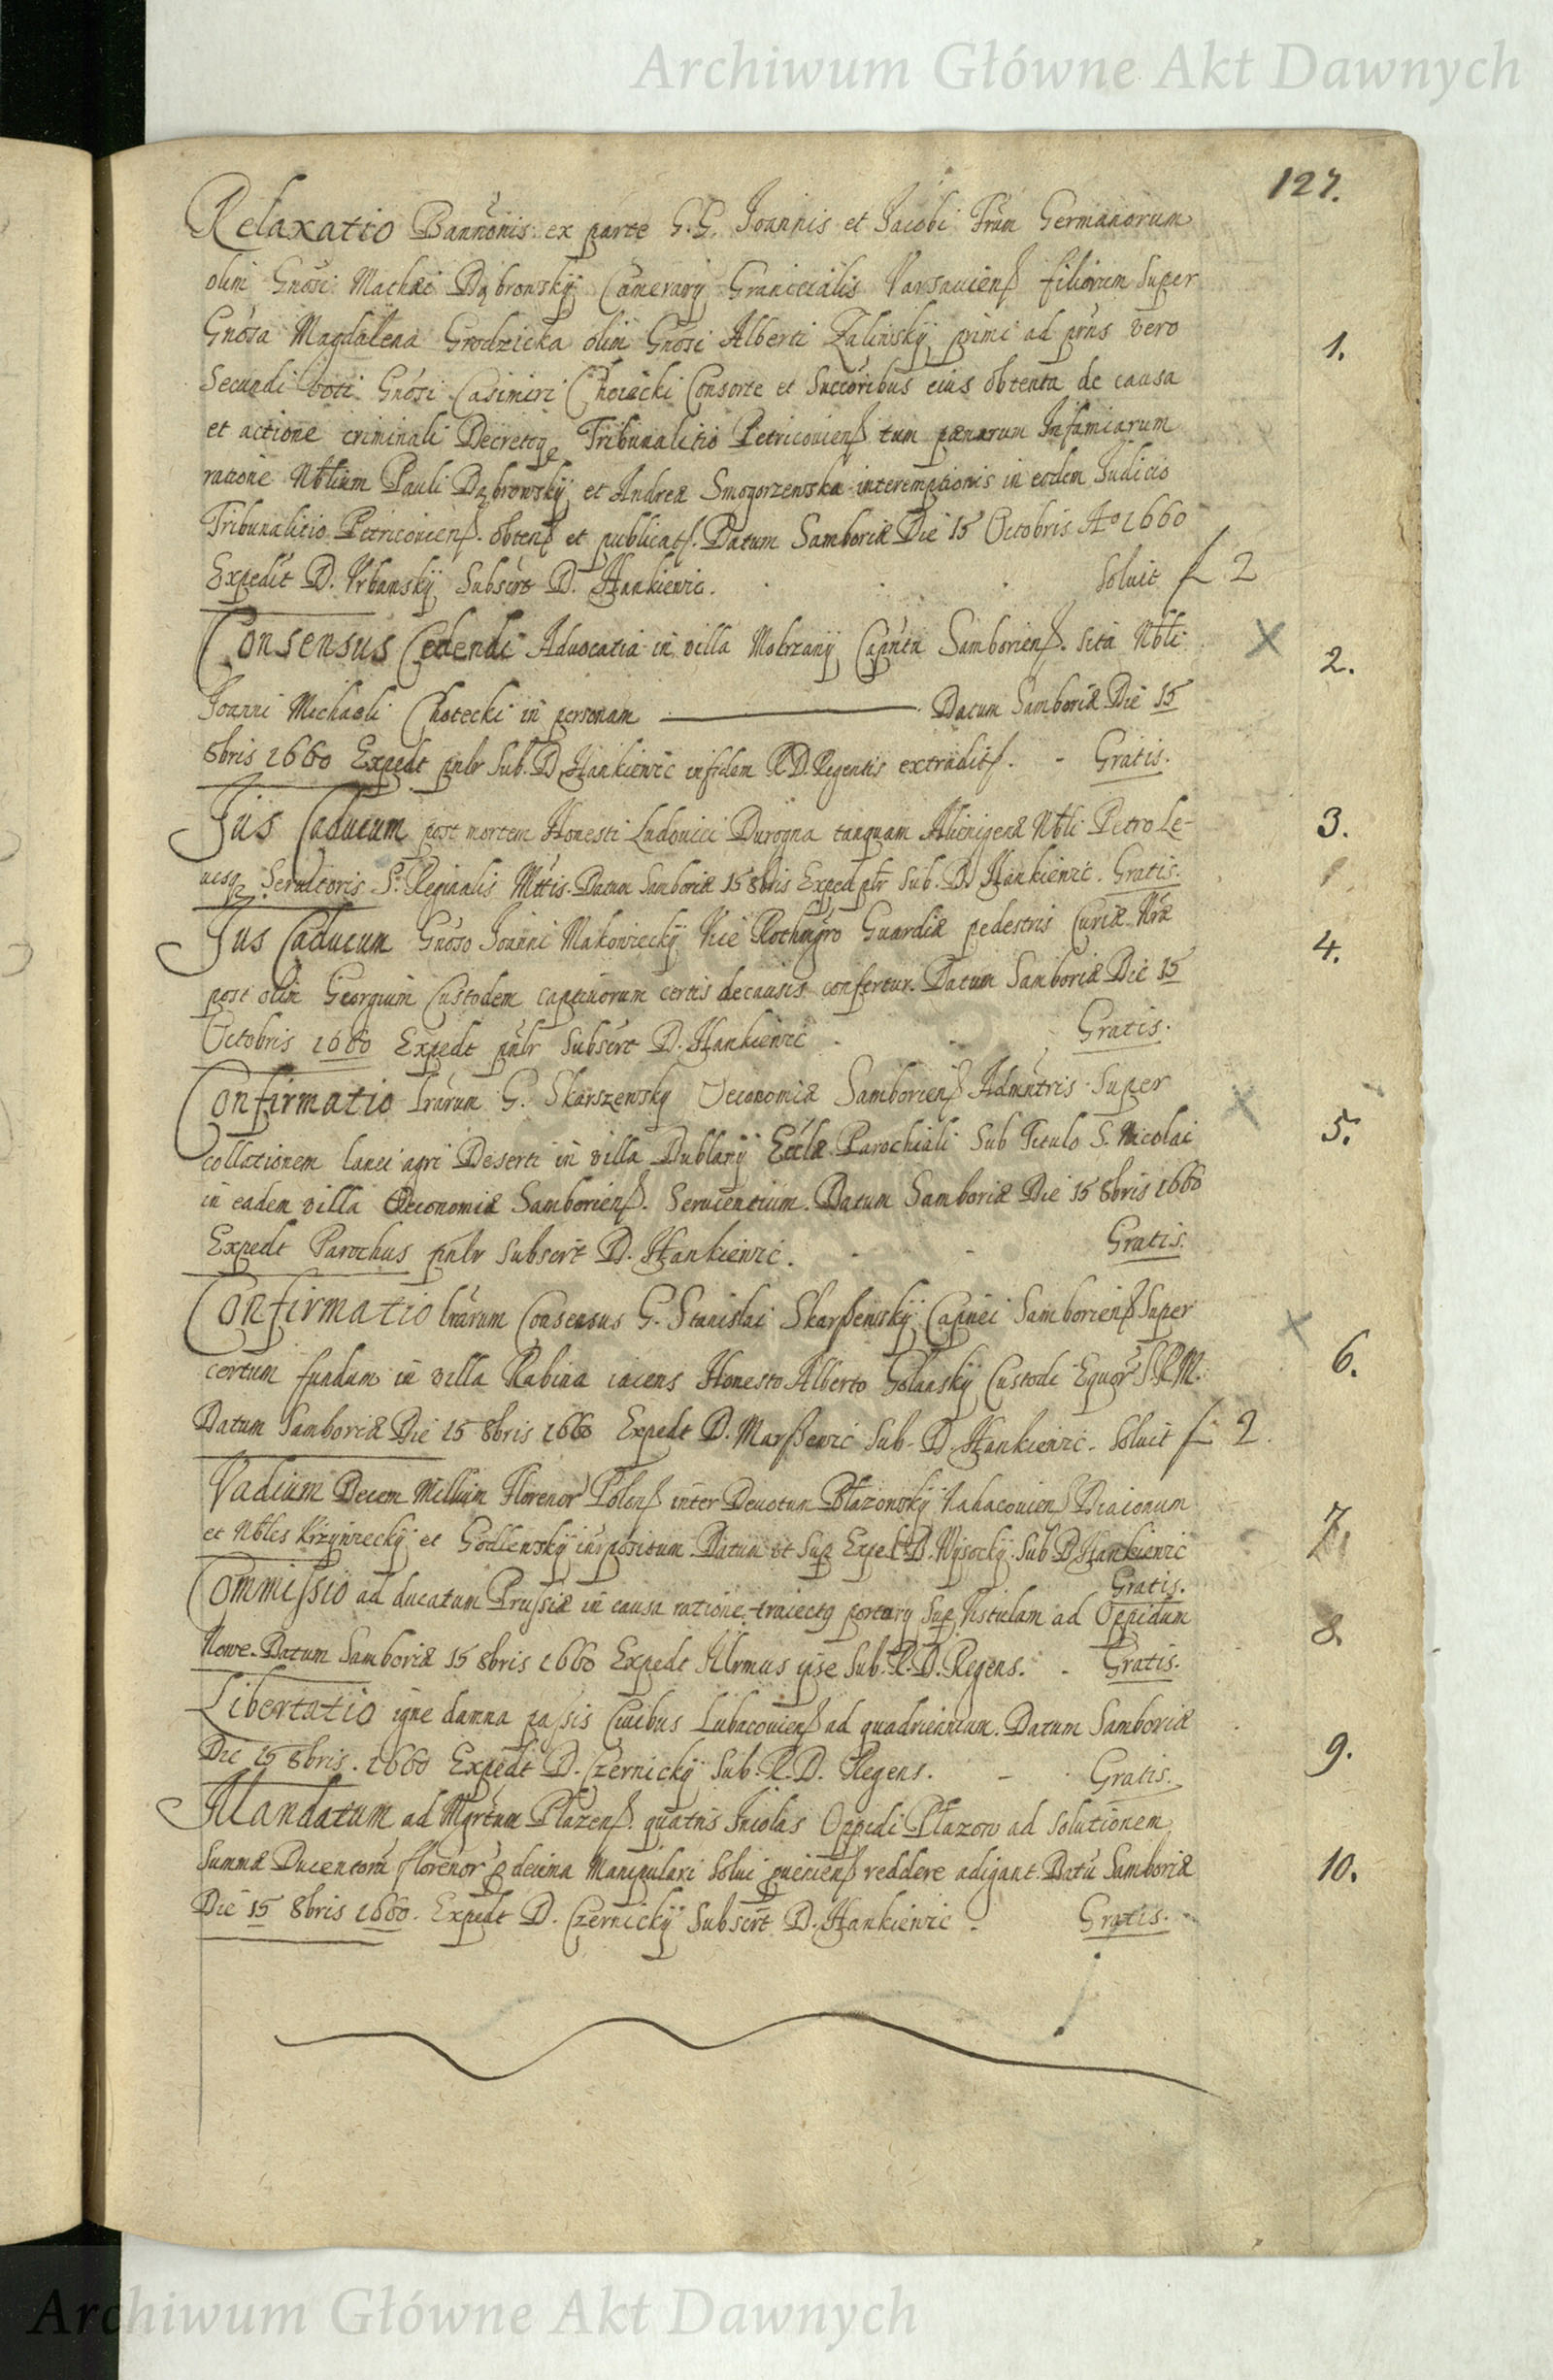 Archiwum Główne Akt Dawnych
127.
Relaxatio Bannonis ex parte G.G. Joannis et Jacobi Frum Germanorum
olim Gnosi Machæi Dąbrowskÿ Camerarÿ Granicialis Varsauienß filiorum Super
Gnosa Magdalena Grodzicka olim Gnosi Alberti Zalinskÿ primi ad prns vero
1.
Secundi voti Gnosi Casimiri Choiecki Consorte et Succoribus eius obtenta de causa
et actione criminali Decretoq Tribunalitio Petricouienß tum pænarum Infamiarum
ratione Nblium Pauli Dąbrowskÿ et Andreæ Smogorzewska interemptionis in eodem Judicio
Tribunalitio Petricouienß. obtenß et publicatß. Datum Samboriæ Die 15 Octobris Ao 1660
Expedit D. Vrbanskÿ Subscrt D. Hankiewic. Soluit f 2
Consensus Cedendi Aduocatia in villa Mokrzanÿ Capntu Samborienß. sita Nbli
2.
Joanni Michaeli Chotecki in personam ——— Datum Samboriæ Die 15
8bris 1660 Expedt pnlr Sub. D Hankiewic infidem R.D. Regentis extraditß. - Gratis.
Jus Caducum post mortem Honesti Ludouici Durogna tanquam Alienigenæ Nbli Petro Le-
3.
uesq Seruitoris S. Reginalis Mttis. Datum Samboriæ 15 8bris Exped plr Sub. D. Hankiewic. Gratis.
Jus Caducum Gnoso Joanni Makowieckÿ Vice Rothmgro Guardiæ pedestris Curiæ Nræ
4.
post olim Georgium Custodem captiuorum certis decausis confertur. Datum Samboriæ Die 15
Octobris 1660 Expedt pnlr Subscrt D. Hankiewic - Gratis.
Confirmatio Lrarum G. Skarszewskÿ Oeconomiæ Samborienß Admntris Super
5.
collationem lanei agri Deserti in villa Dublanÿ Eccliæ Parochiali Sub Titulo S. Nicolai
in eadem villa Oeconomiæ Samborienß. Seruientium. Datum Samboriæ Die 15 8bris 1660
Expedt Parochus pnlr Subscrt D. Hankiewic. - Gratis.
Confirmatio lrarum Consensus G. Stanislai Skarßewskÿ Capnei Samborienß Super
6.
certum fundum in villa Rabina iacens Honesto Alberto Golanskÿ Custodi Equor S.R.M.
Datum Samboriæ Die 15 8bris 1660 Expedt D. Marßewic Sub. D. Hankiewic. Soluit f 2.
Vadium Decem Millium Florenor Polonß inter Deuotum Błazowskÿ Diaconum
7.
et Nbles Krzÿwieckÿ et Godlewskÿ Datum ut Sup Exped D. Wÿsockÿ. Sub D Hankiewic
Gratis.
Commissio ad ducatum Prussiæ in causa ratione traiectq portarÿ Sup Vistulam ad Oppidum
8.
Nowe. Datum Samboriæ 15 8bris 1660 Expedt Illrmus ipse Sub. R. D. Regens. - Gratis.
Libertatio igne damna passis Ciuibus Lubacouienß ad quadriennium. Datum Samboriæ
9.
Die 15 8bris. 1660 Expedt D. Czernickÿ Sub. R. D. Regens. - Gratis.
Mandatum ad Mgrtum Plazenß. quatnis Incolas Oppidi Płazow ad Solutionem
Summæ Ducentom florenor p decima Manipulari Solui reddere adigant. Datu Samboriæ
10.
Die 15 8bris 1660. Expedt D. Czernickÿ Subscrt D. Hankiewic. Gratis.
Archiwum Główne Akt Dawnych